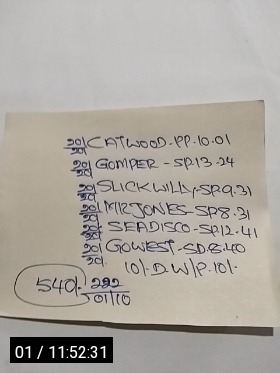 20/20 CATWOOD-PP.10.01
20/20 GOMPER-SP.13.24
20/20 SLICKWILLY-SP.9.31
20/20 MRJONES-SP.8.31
20/20 SEADISCO-SP.12.41
20/20 GOWEST-SD.8.40
10/-D.W/P.10/-
540/- 222
01/10
01 / 11:52:31